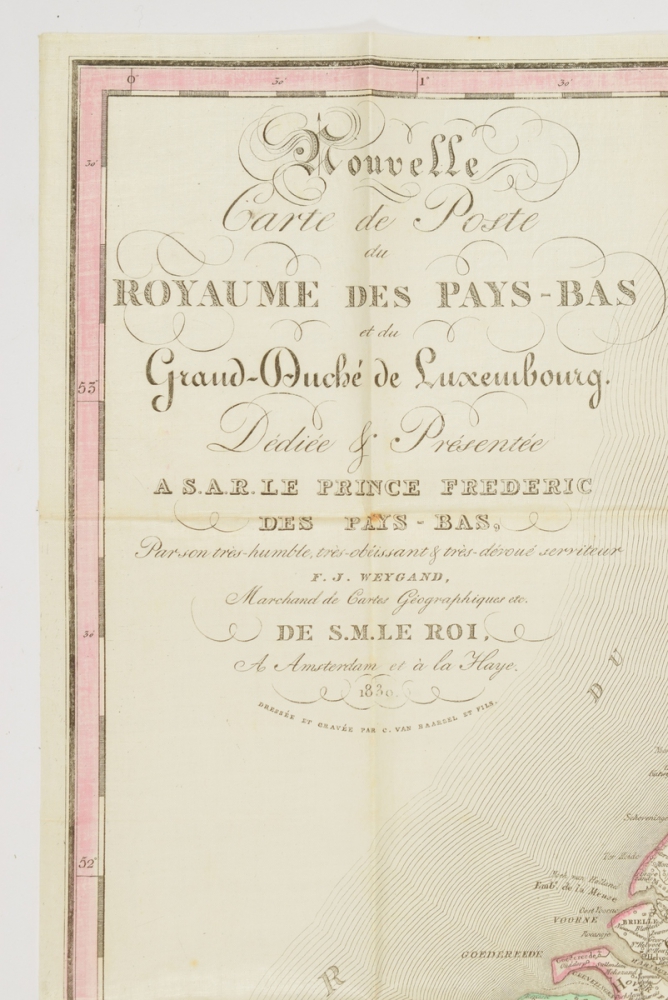 0°
30'
1°
30'
30'
Nouvelle
Carte de Poste
du
ROYAUME DES PAYS-BAS
et du
Grand-Duché de Luxembourg.
53°
Dédiée & Présentée
A S.A.R. LE PRINCE FREDERIC
DES PAYS-BAS,
Par son très-humble, très-obéissant & très-dévoué serviteur
F. J. WEYGAND,
Marchand de Cartes Géographiques etc.
DE S.M. LE ROI,
30'
A Amsterdam et à la Haye.
1830.
DRESSÉE ET GRAVÉE PAR C. VAN BAARSEL ET FILS.
DU
52°
Emb. de la Meuse
VOORNE
BRIELLE
GOEDEREEDE
R